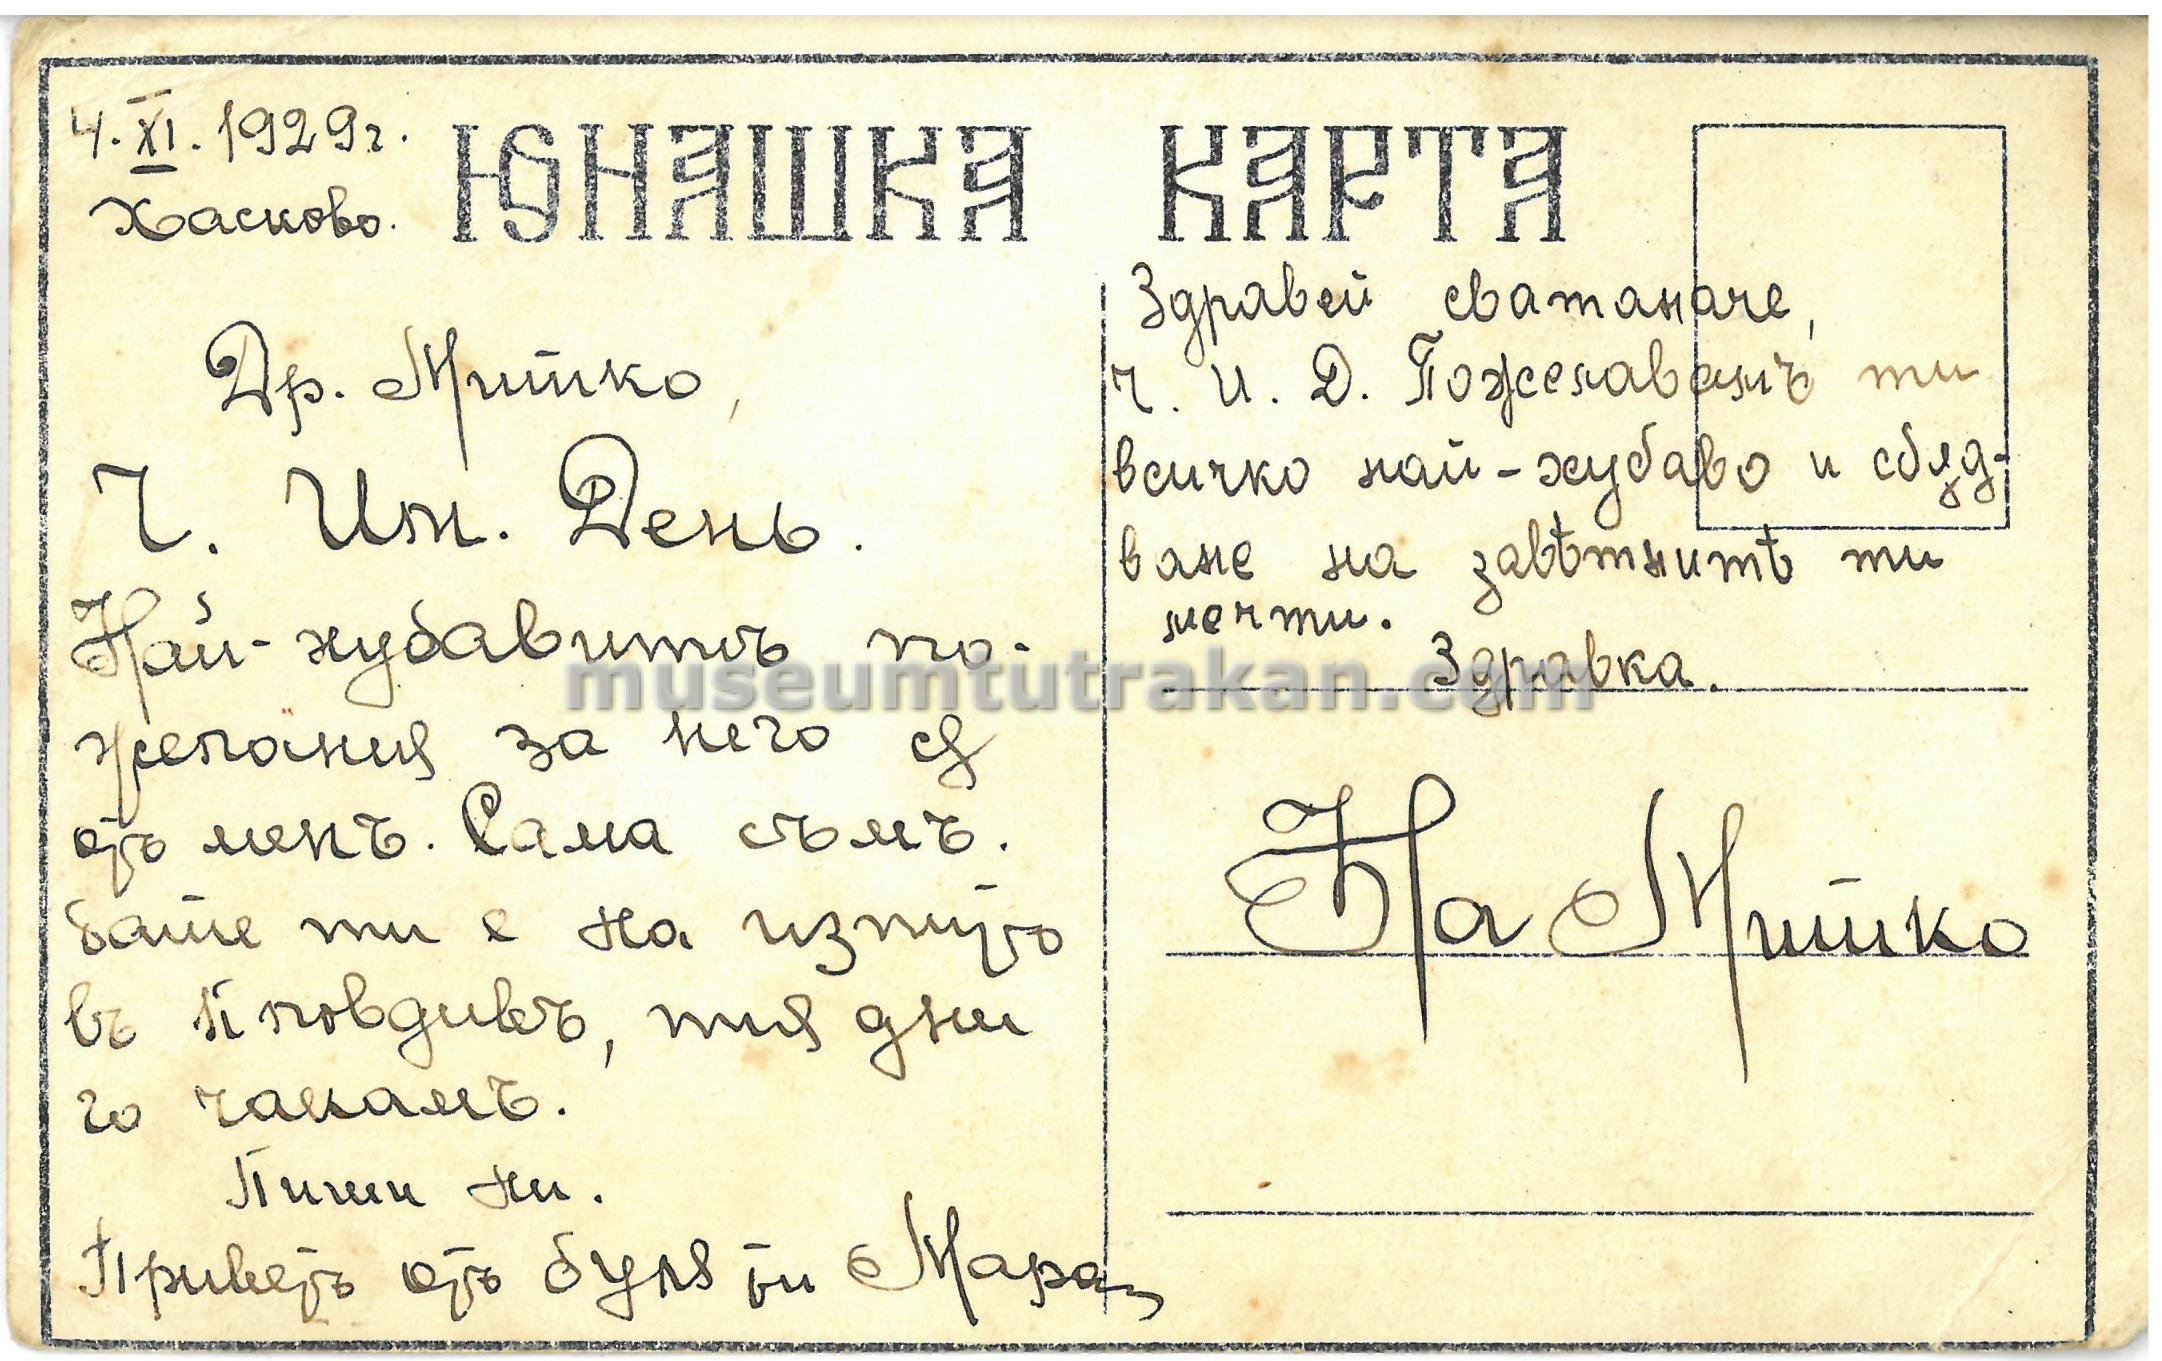 4.XI.1929г.
Хасково.
ЮНАШКА КАРТА
Др. Митко,
Ч. Им. День.
Най-хубавитѣ по-
желания за него сѫ
отъ менъ. Сама съмъ.
Бате ти е на изпитъ
въ Пловдивъ, тия дни
го чакамъ.
Пиши ни.
Приветъ отъ буля ти Мара
Здравей сватаначе,
Ч. И. Д. Пожелавамъ ти
всичко най-хубаво и сбѫд-
ване на завѣтнитѣ ти
мечти.
Здравка.
На Митко
museumtutrakan.com